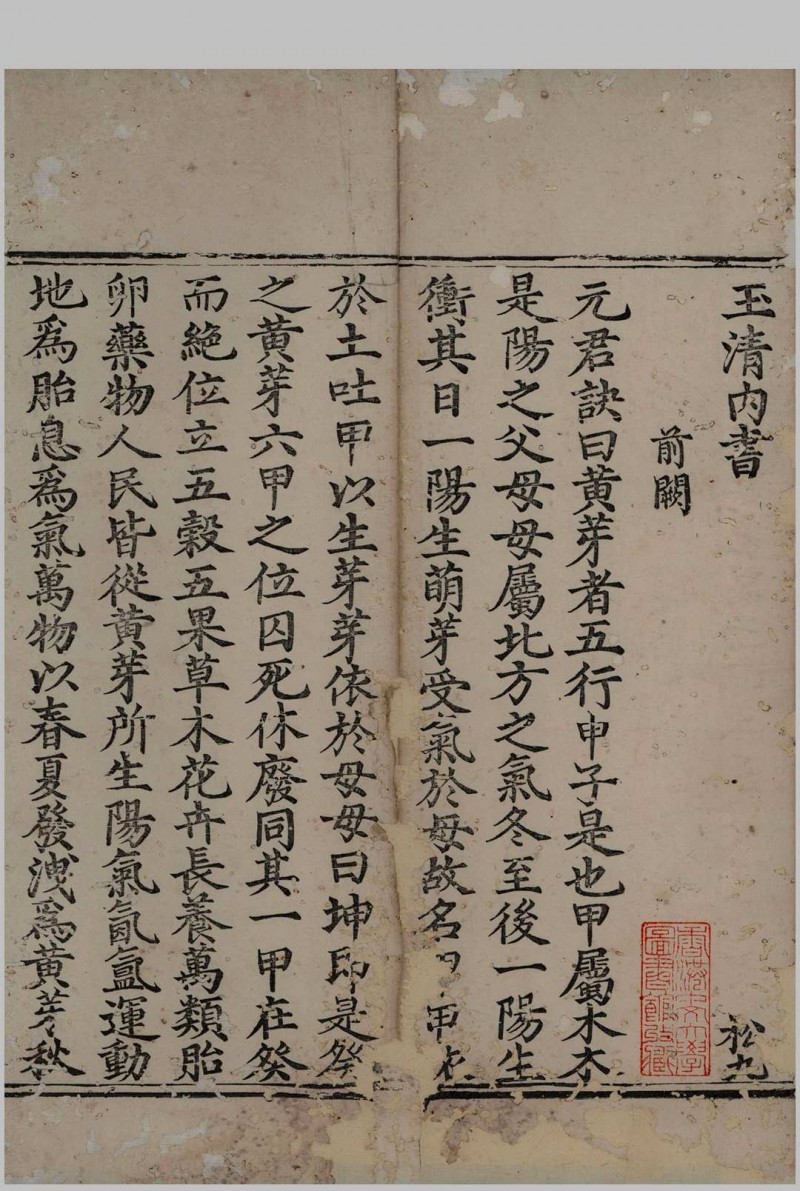 玉清內書 松九
前闕
元君訣曰黃芽者五行申子是也甲屬木木
是陽之父母母屬北方之氣冬至後一陽生
衝其日一陽生萌芽受氣於母故名 甲
於土吐甲以生芽芽依於母母曰坤卽是癸
之黃芽六甲之位囚死休廢同其一甲在癸
而絕位立五穀五果草木花卉長養萬類胎
卵藥物人民皆從黃芽所生陽氣氤氳運動
地爲胎息爲氣萬物以春夏發洩爲黃芽秋
香港中文大學
圖書館所藏